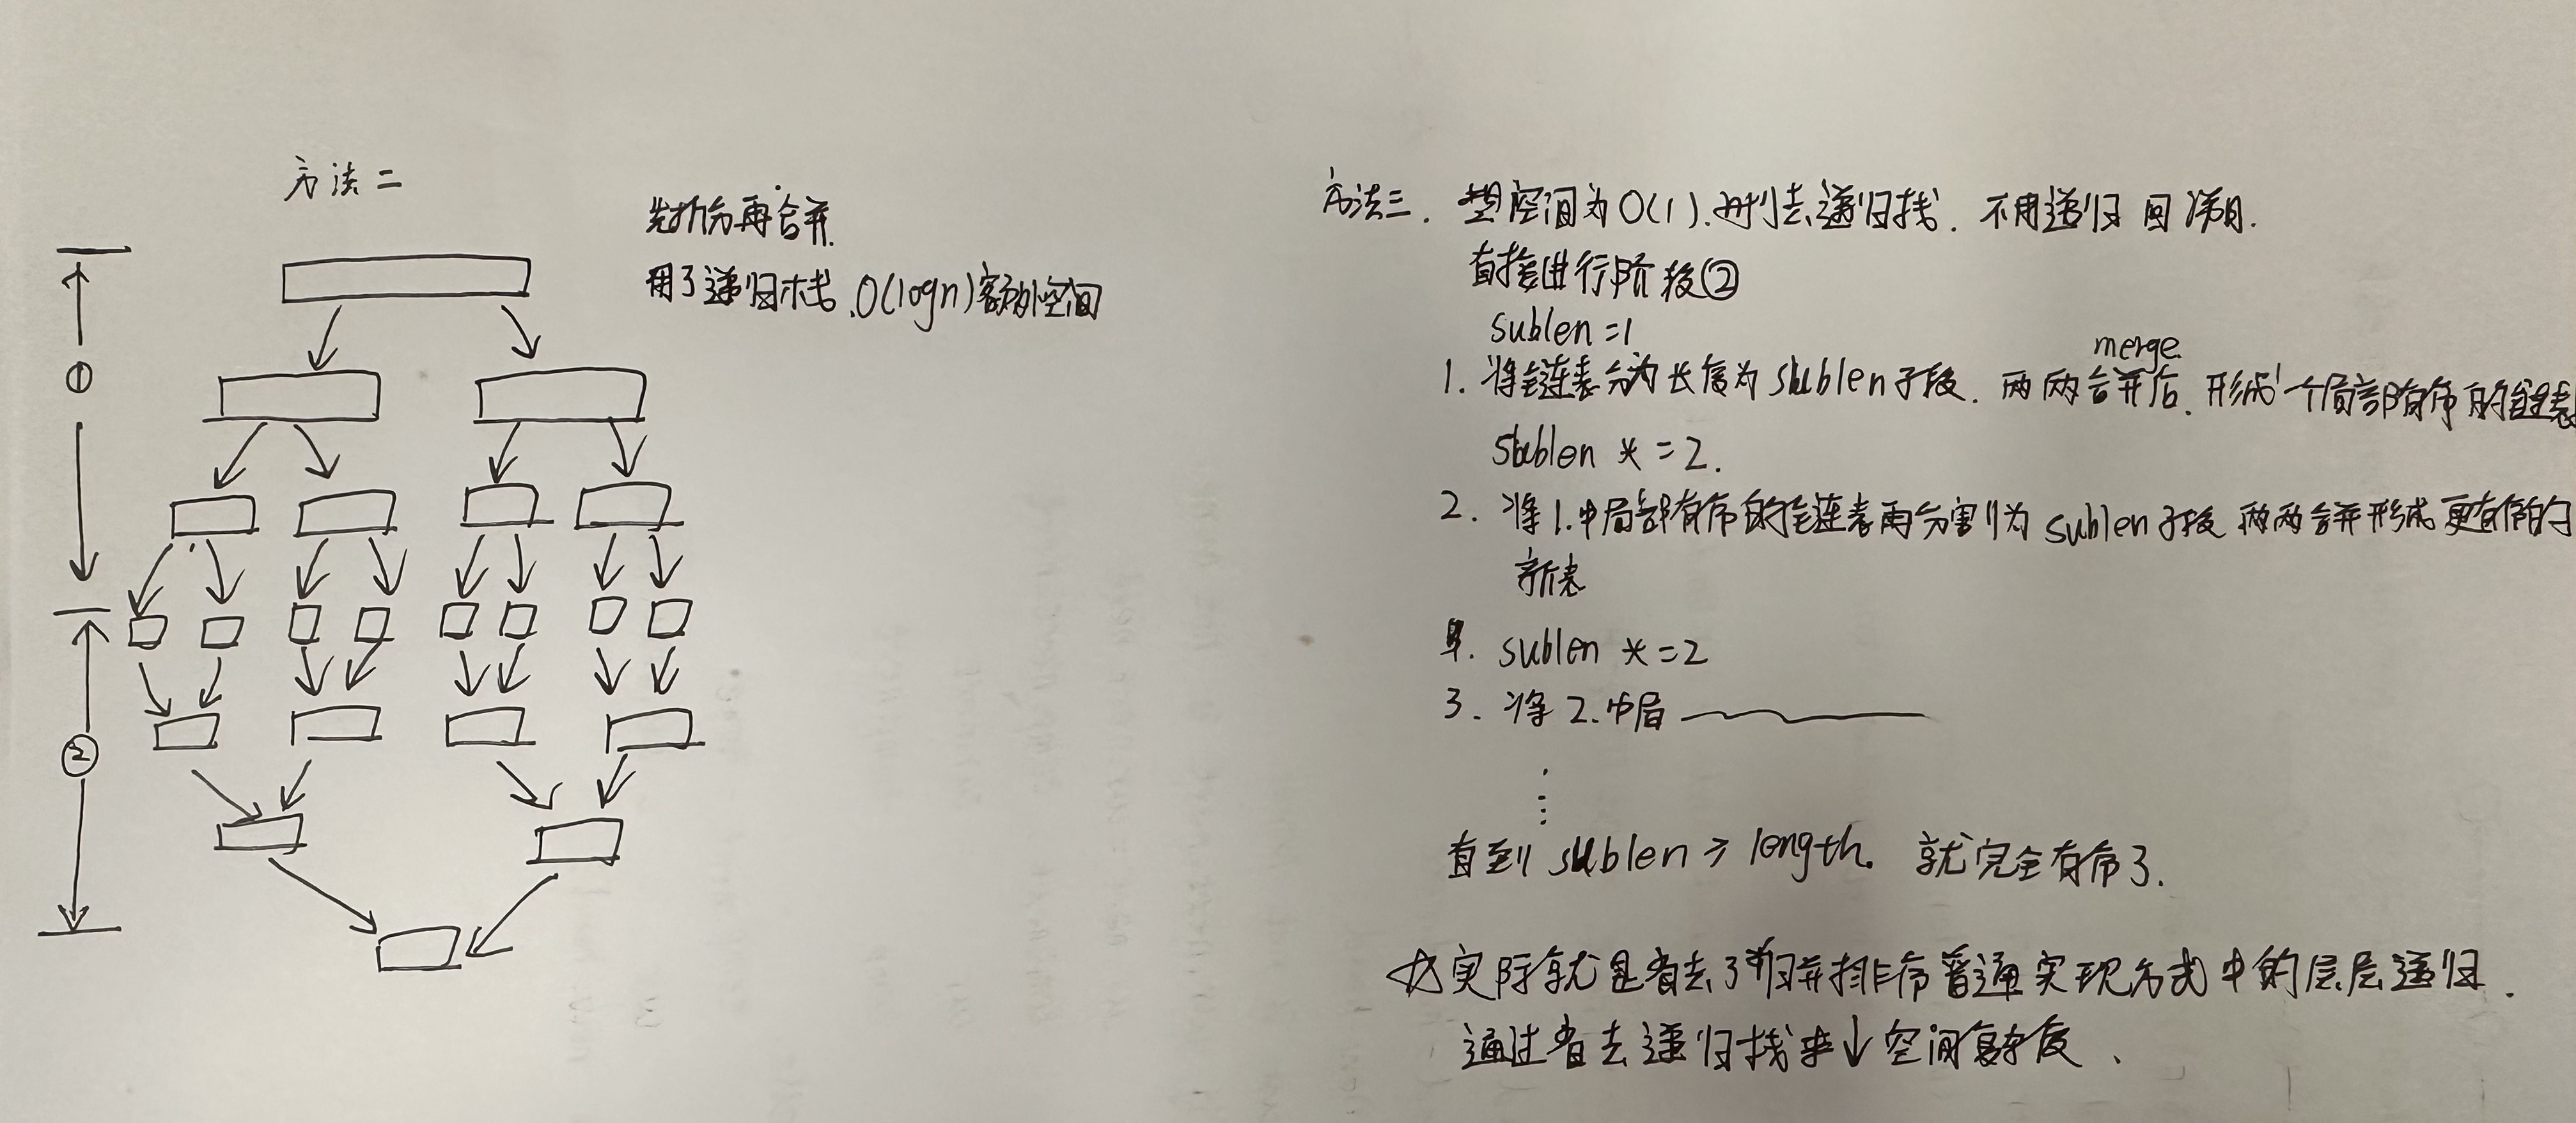 方法二
先拆分再合并.
用了递归栈.O(logn)额外空间
①
②
方法三. 想空间为O(1).再删去递归栈. 不用递归回溯用.
直接进行阶段②
sublen=1
merge
1. 将链表分为长度为sublen子段. 两两合并后. 形成一个局部有序的链表
sublen *=2.
2. 将1.中局部有序的链表再分割为sublen子段两两合并形成更有序的
新表
sublen *=2
3. 将2.中局
直到 sublen ≥ length. 就完全有序了.
实际就是省去了归并排序普通实现方式中的层层递归.
通过省去递归栈来↓空间复杂度.